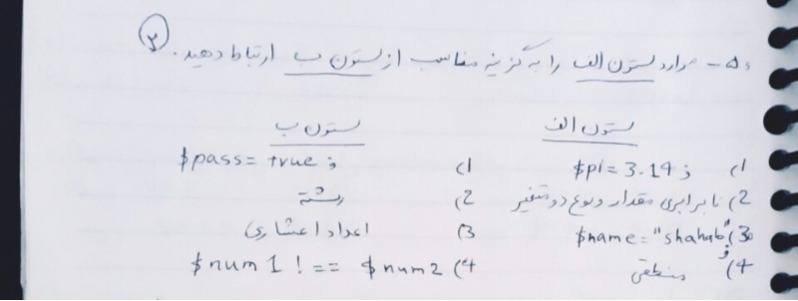 ۵- موارد ستون الف را به گزینه مناسب از ستون ب ارتباط دهید. (۲)
ستون الف ستون ب
1) $pi = 3.14 ; 1) $pass = true ;
2) نابرابری مقدار و نوع دو متغیر 2) رشته
3) $name = "shahab" ; 3) اعداد اعشاری
4) منطقی 4) $num1 ! == $num2